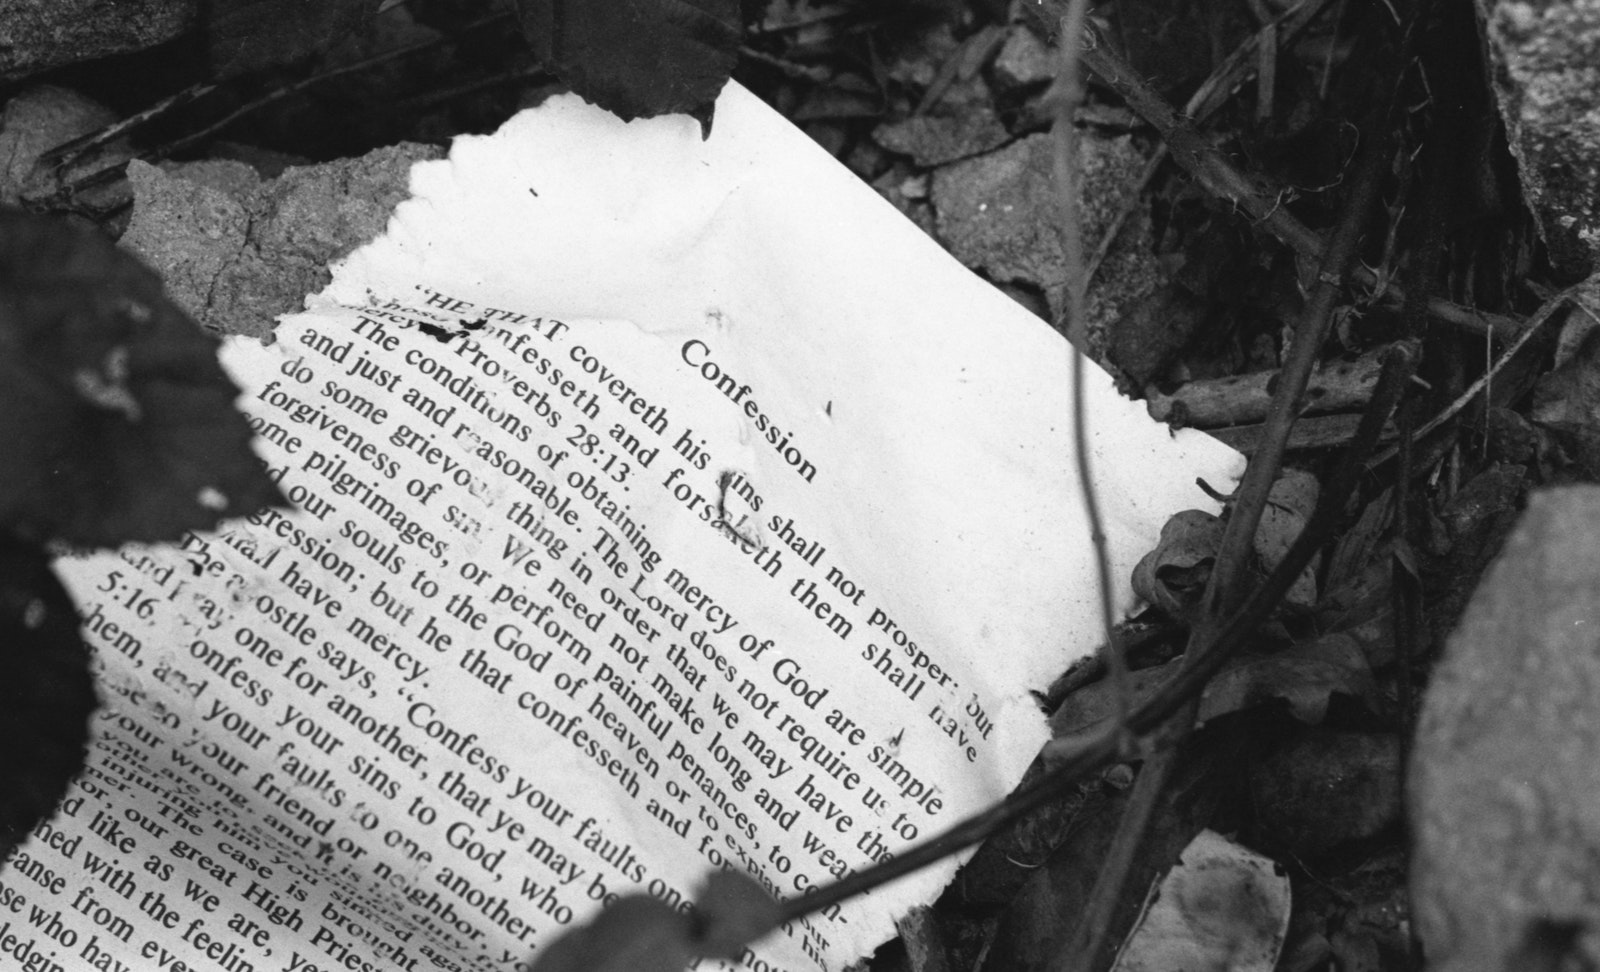 Confession
“HE THAT covereth his sins shall not prosper: but
whoso confesseth and forsaketh them shall have
mercy” Proverbs 28:13.
The conditions of obtaining mercy of God are simple
and just and reasonable. The Lord does not require us to
do some grievous thing in order that we may have the
forgiveness of sin. We need not make long and weary
some pilgrimages, or perform painful penances, to con-
our souls to the God of heaven or to expiate our
gression; but he that confesseth and his
shall have mercy.
The apostle says, “Confess your faults one
and pray one for another, that ye may be
5:16. Confess your sins to God, who
them, and your faults to one another.
your friend or neighbor,
your wrong, and it is his duty
you are to seek
injuring him you sinned
The case is brought
our great High Priest
like as we are,
with the feelin
eanse from ever
se who hav
ledgin